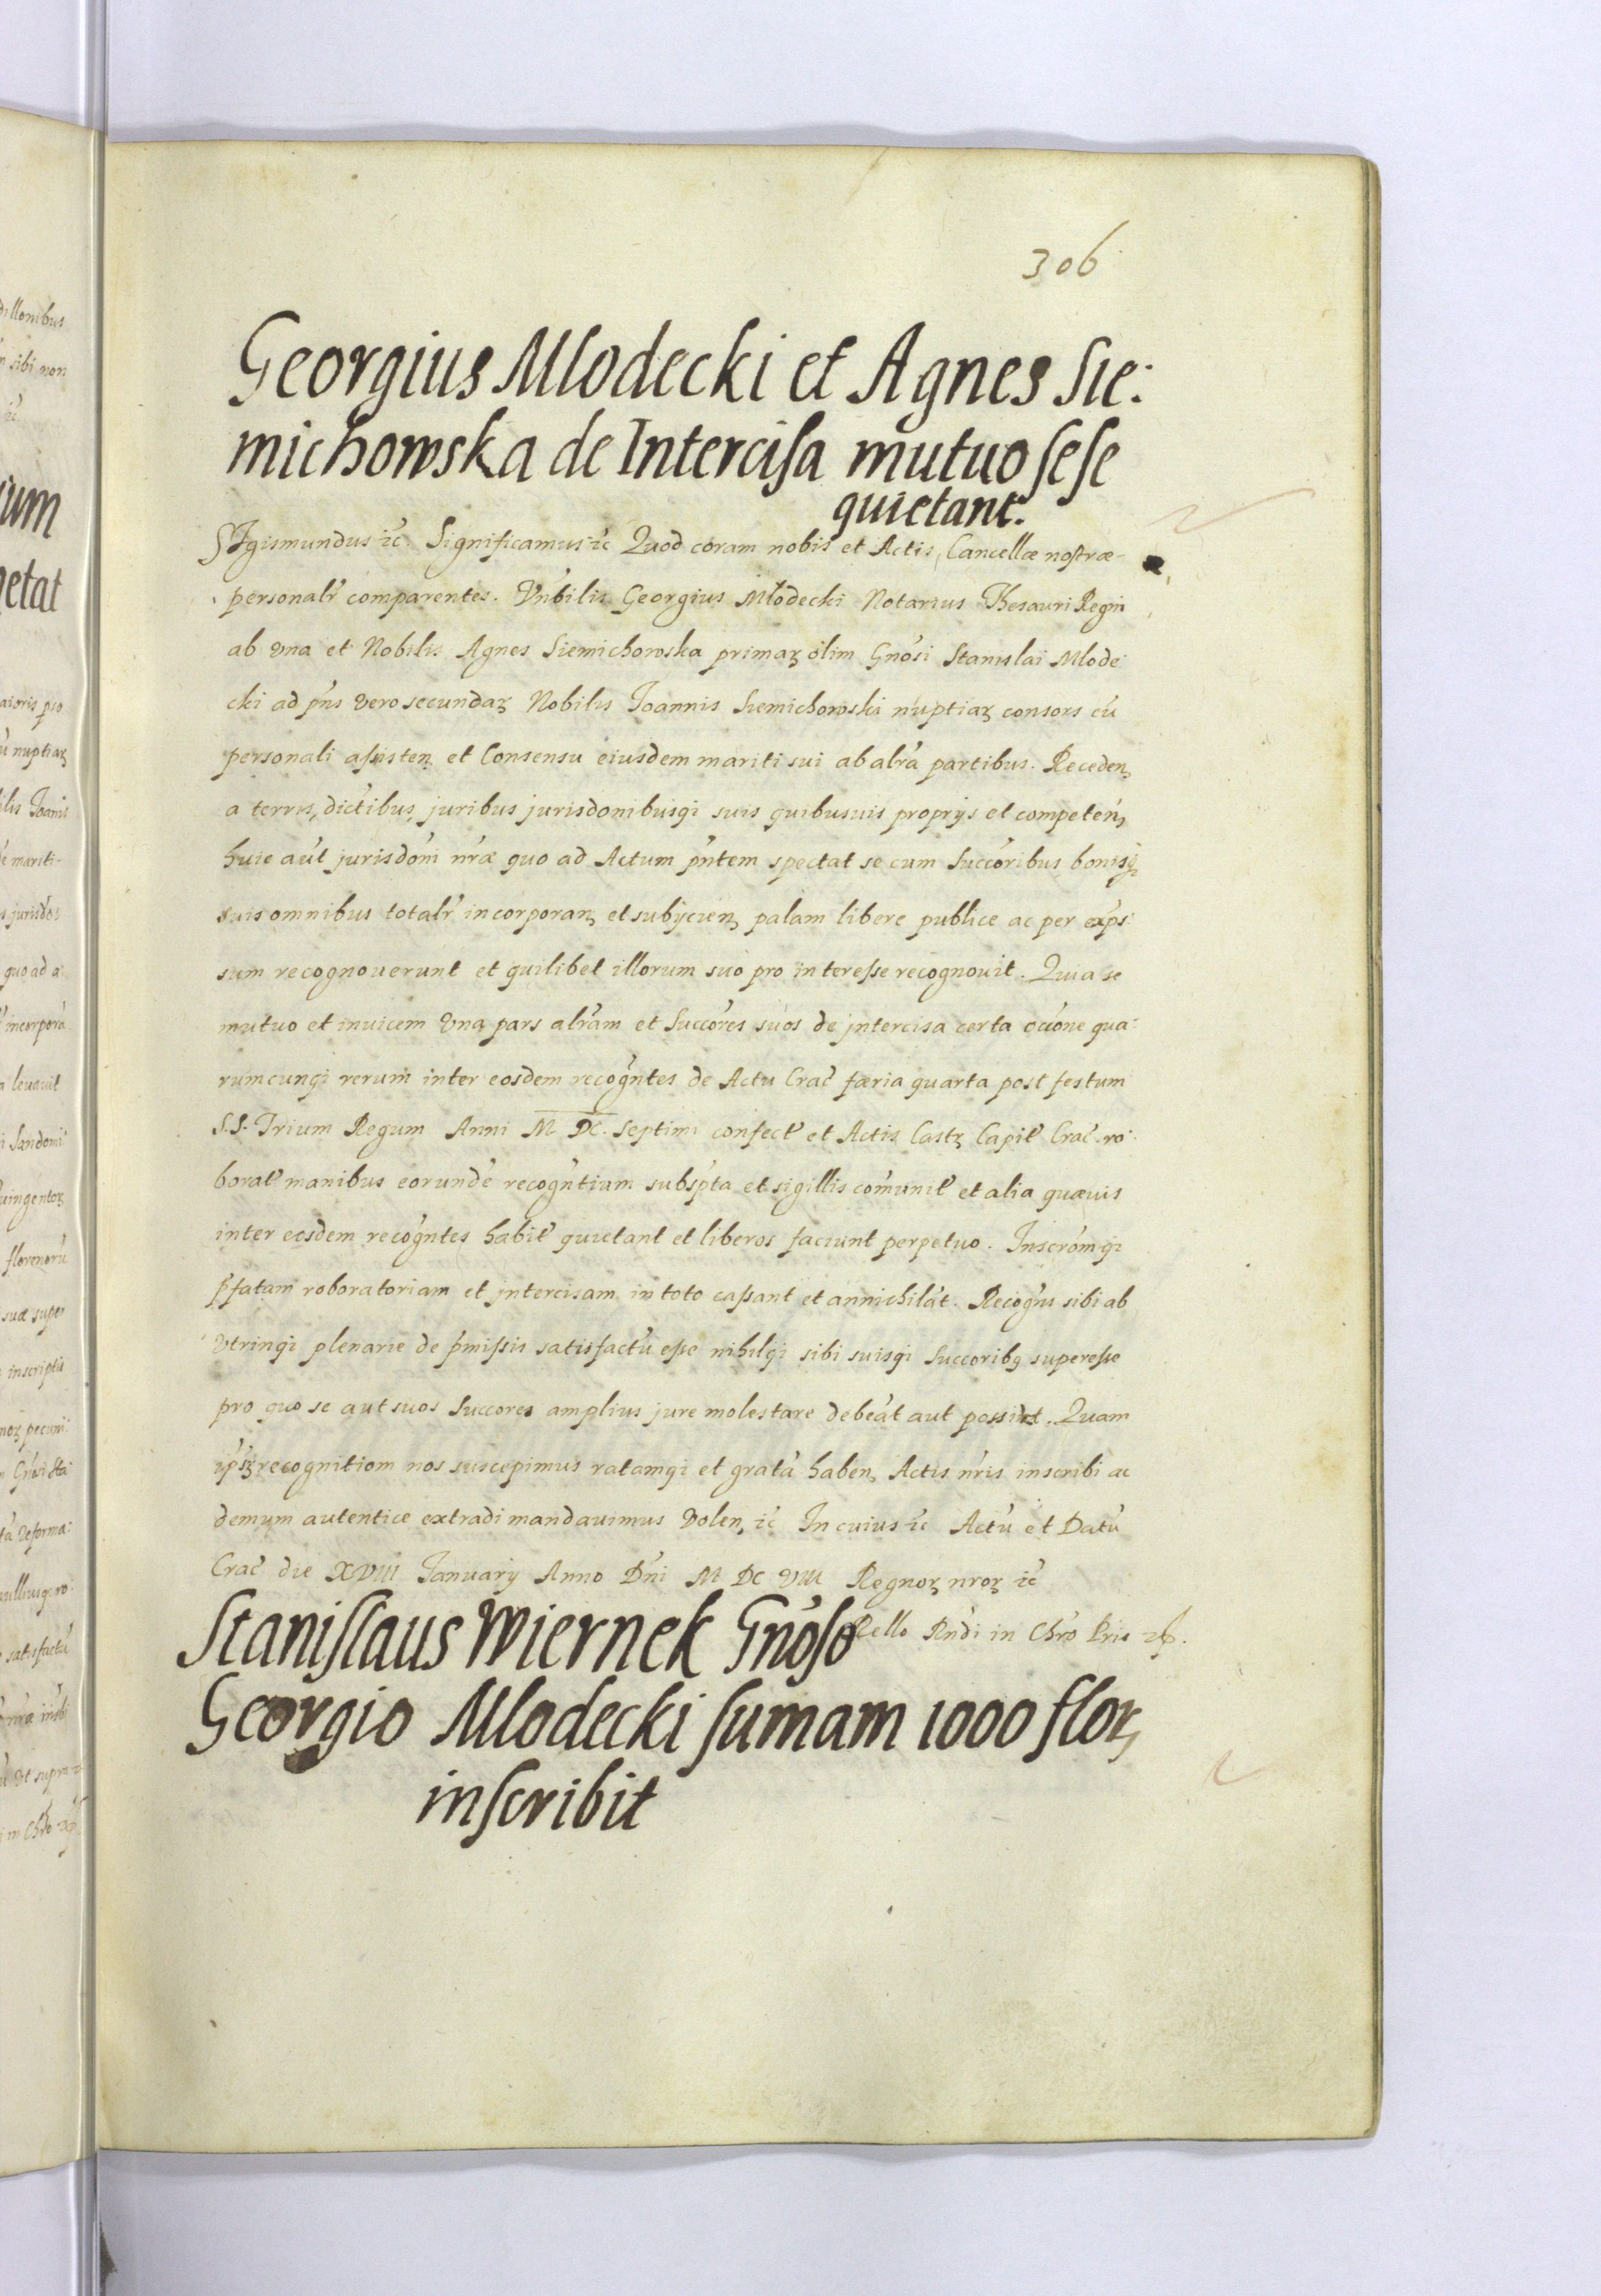 306
Georgius Mlodecki et Agnes Sie:
michowska de Intercisa mutuo sese
quietant.
SIgismundus ic̃. Significamus ic̃ Quod coram nobis et Actis Cancellæ nostræ
personalr̃ comparentes. Vn̄bilis Georgius Młodecki Notarius Thesauri Regni
ab vna et Nobilis Agnes Siemichowska primaꝝ olim Gnōsi Stanislai Mlode
cki ad p̄ns vero secundaꝝ Nobilis Joannis Siemichowski nuptiaꝝ consors cū
personali assisten. et Consensu eiusdem mariti sui ab alr̄a partibus. Receden.
a terris, dictibus, juribus jurisdonibusqȝ suis quibusuis proprijs et competen̄,
huic aūt jurisdōni nr̄æ quo ad Actum p̄ntem spectat se cum Succōribus bonisqȝ
suis omnibus totalr̄ incorporan. et subijcien. palam libere publice ac per exp̄s:
sum recognouerunt et quilibet illorum suo pro interesse recognouit. Quia se
mutuo et inuicem vna pars alr̄am et Succōres suos de jntercisa certa oc̄cone qua:
rumcunqȝ rerum inter eosdem recogn̄tes de Actu Crac̄ færia quarta post festum
S.S. Trium Regum Anni M DC. septimi confect̄ et Actis Castꝝ Capit̄ Crac̄. ro:
borat̄ manibus eorundē recogn̄tium subsp̄ta et sigillis com̄unit̄ et alia quæuis
inter eosdem recogn̄tes habit̄ quietant et liberos faciunt perpetuo. Inscrōmqȝ
p̄fatam roboratoriam et jntercisam in toto cassant et annichilāt. Recogn̄s sibi ab
vtrinqȝ plenarie de p̄missis satisfactū esse nihilqȝ sibi suisqȝ Succoribꝫ superesse
pro quo se aut suos Succores amplius jure molestare debeāt aut possint. Quam
recognitiom nos suscepimus ratamqȝ et gratā haben. Actis nr̄is inscribi ac
demum autentice extradi mandauimus Volen. ic̄ In cuius ic̄ Actū et Datū
Crac̄ die XVIII January Anno Dn̄i M DC VIII Regnoꝝ nroꝝ ic̄
Rello Rn̄di in Chrō Pris
Stanislaus Wiernek Gnōso
Georgio Mlodecki sumam 1000 floꝝ
inscribit